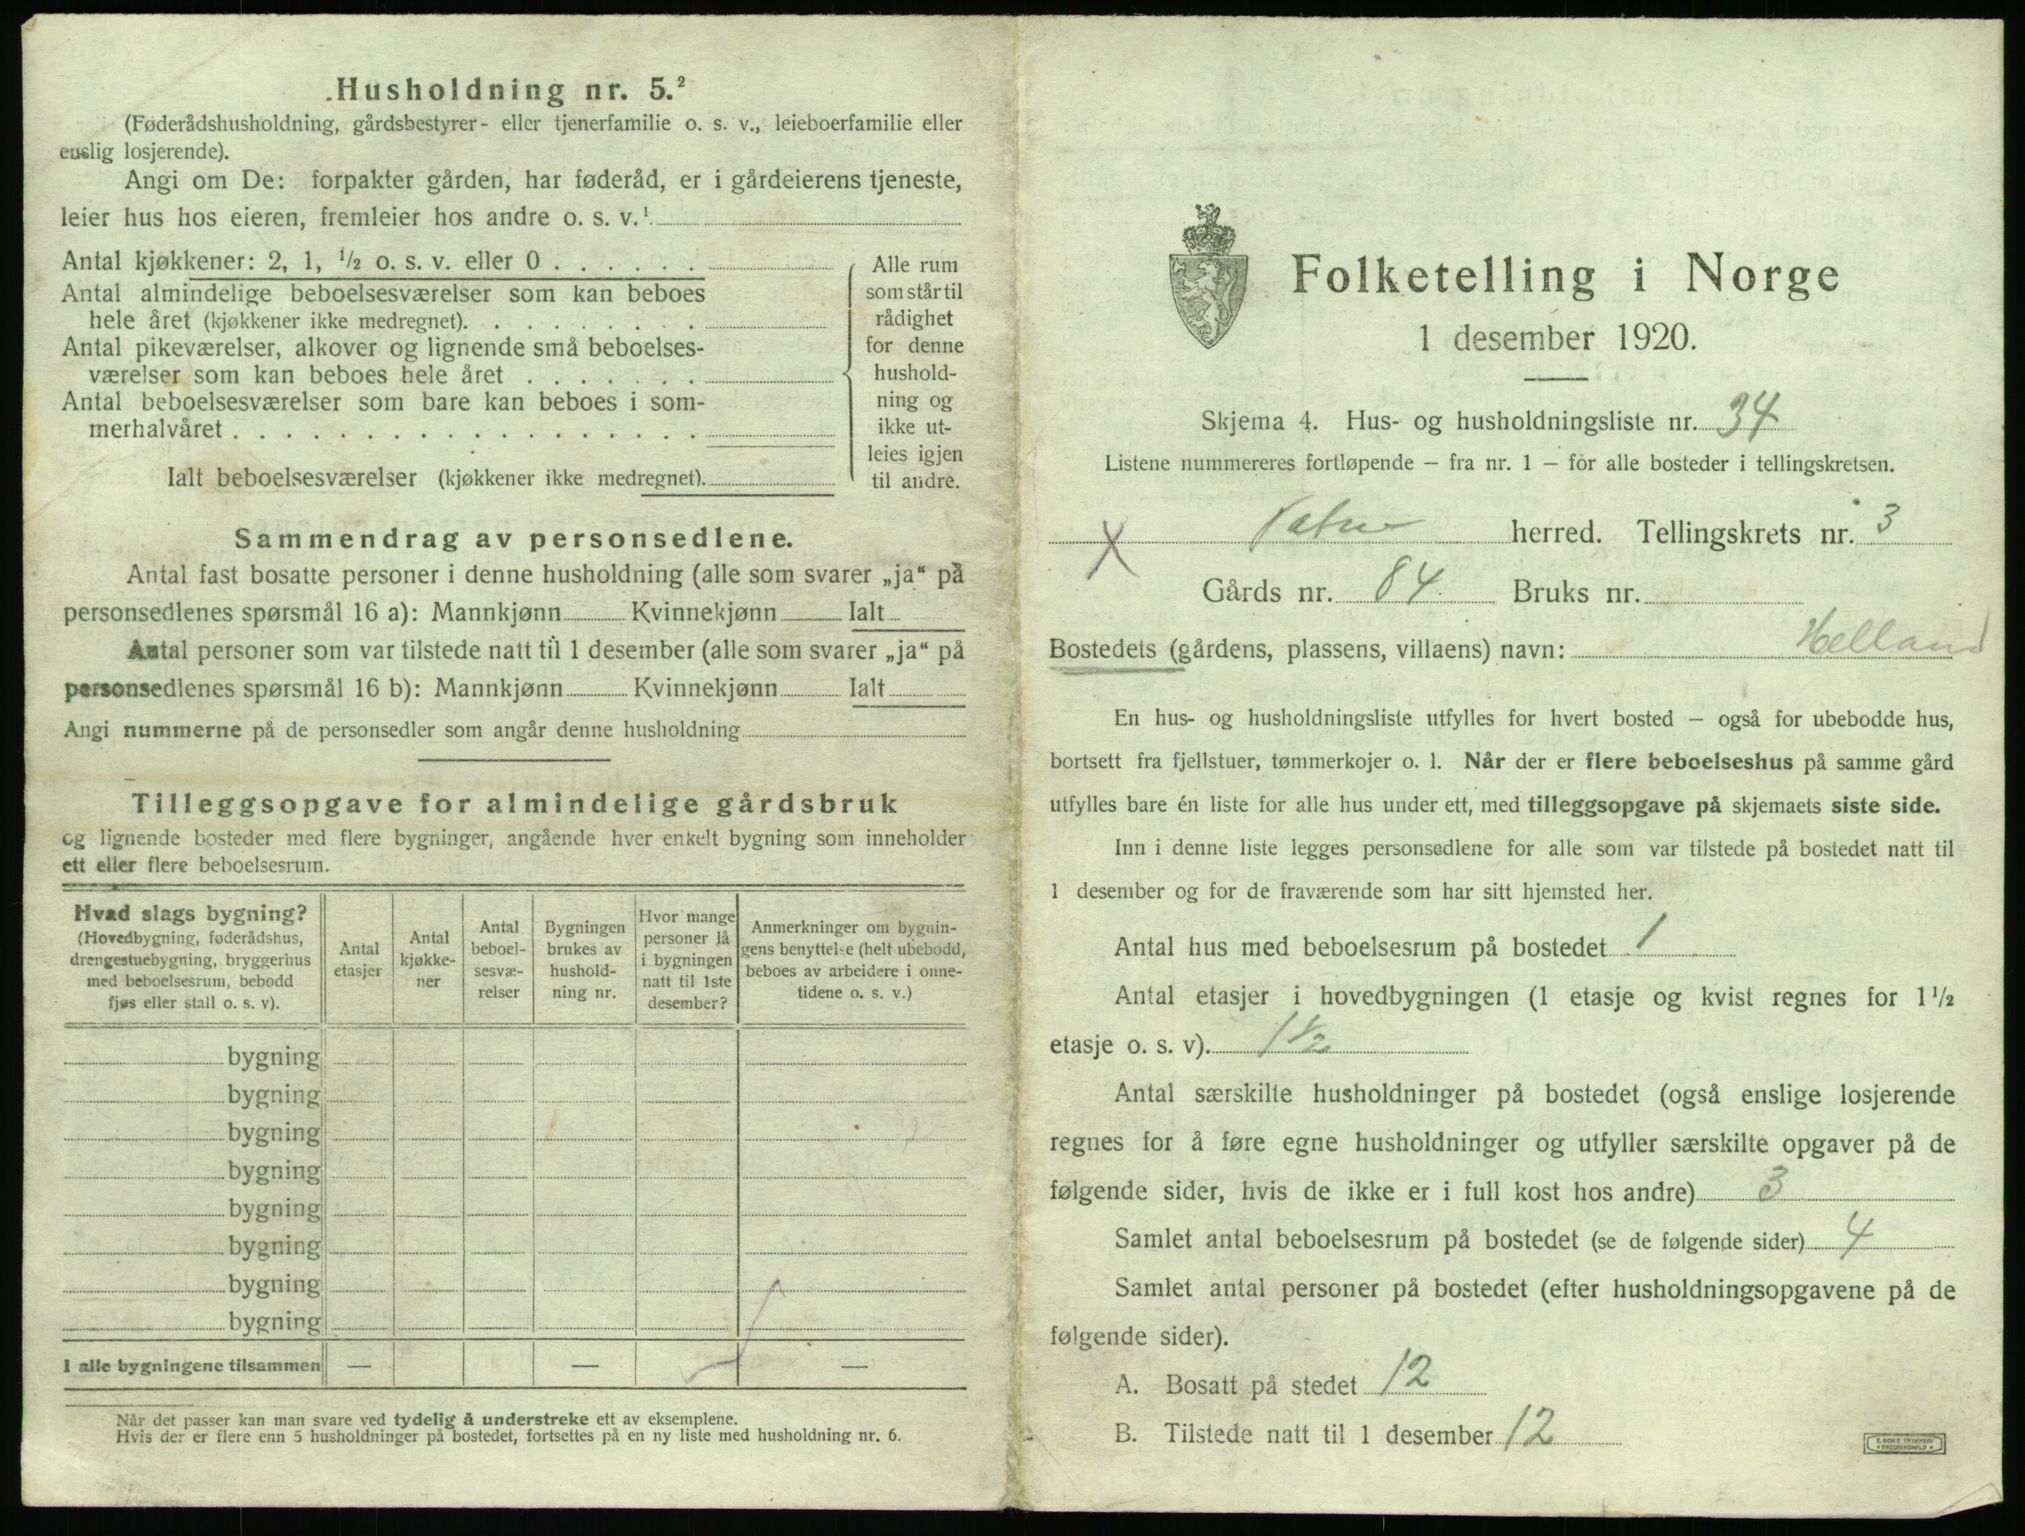 .Husholdning nr. 5.²
(Føderådshusholdning, gårdsbestyrer- eller tjenerfamilie o. s. v., leieboerfamilie eller
enslig losjerende).
Angi om De: forpakter gården, har føderåd, er i gårdeierens tjeneste,
leier hus hos eieren, fremleier hos andre o. s. v.¹
Antal kjøkkener: 2, 1, ½ o. s. v. eller 0 . . . . . .
Antal almindelige beboelsesværelser som kan beboes
hele året (kjøkkener ikke medregnet). . . . . . . . .
Antal pikeværelser, alkover og lignende små beboelses-
værelser som kan beboes hele året . . . . . . .
Antal beboelsesværelser som bare kan beboes i som-
merhalvåret . . . . . . . . . . . . . . . . . .
Ialt beboelsesværelser (kjøkkener ikke medregnet).
Alle rum
som står til
rådighet
for denne
hushold-
ning og
ikke ut-
leies igjen
til andre.
Sammendrag av personsedlene.
Antal fast bosatte personer i denne husholdning (alle som svarer „ja“ på
personsedlenes spørsmål 16 a): Mannkjønn Kvinnekjønn Ialt
Antal personer som var tilstede natt til 1 desember (alle som svarer „ja“ på
personsedlenes spørsmål 16 b): Mannkjønn Kvinnekjønn Ialt
Angi nummerne på de personsedler som angår denne husholdning
Tilleggsopgave for almindelige gårdsbruk
og lignende bosteder med flere bygninger, angående hver enkelt bygning som inneholder
ett eller flere beboelsesrum.
Hvad slags bygning?
(Hovedbygning, føderådshus,
drengestuebygning, bryggerhus
med beboelsesrum, bebodd
fjøs eller stall o. s. v).
Antal
etasjer
Antal
kjøkke-
ner
Antal
beboel-
sesvæ-
relser
Bygningen
brukes av
hushold-
ning nr.
Hvor mange
personer lå
i bygningen
natt til 1ste
desember?
Anmerkninger om bygnin-
gens benyttelse (helt ubebodd,
beboes av arbeidere i onne-
tidene o. s. v.)
bygning
bygning
bygning
bygning
bygning
bygning
bygning
bygning
I alle bygningene tilsammen — — —
Når det passer kan man svare ved tydelig å understreke ett av eksemplene.
Hvis der er flere enn 5 husholdninger på bostedet, fortsettes på en ny liste med husholdning nr. 6.
Folketelling i Norge
1 desember 1920.
Skjema 4. Hus- og husholdningsliste nr. 34
Listene nummereres fortløpende – fra nr. 1 – for alle bosteder i tellingskretsen.
X Vatne herred. Tellingskrets nr. 3
Gårds nr. 84 Bruks nr.
Bostedets (gårdens, plassens, villaens) navn: Helland
En hus- og husholdningsliste utfylles for hvert bosted – også for ubebodde hus,
bortsett fra fjellstuer, tømmerkojer o. l. Når der er flere beboelseshus på samme gård
utfylles bare én liste for alle hus under ett, med tilleggsopgave på skjemaets siste side.
Inn i denne liste legges personsedlene for alle som var tilstede på bostedet natt til
1 desember og for de fraværende som har sitt hjemsted her.
Antal hus med beboelsesrum på bostedet 1
Antal etasjer i hovedbygningen (1 etasje og kvist regnes for 1½
etasje o. s. v). 1½
Antal særskilte husholdninger på bostedet (også enslige losjerende
regnes for å føre egne husholdninger og utfyller særskilte opgaver på de
følgende sider, hvis de ikke er i full kost hos andre) 3
Samlet antal beboelsesrum på bostedet (se de følgende sider) 4
Samlet antal personer på bostedet (efter husholdningsopgavene på de
følgende sider).
A. Bosatt på stedet 12
B. Tilstede natt til 1 desember 12